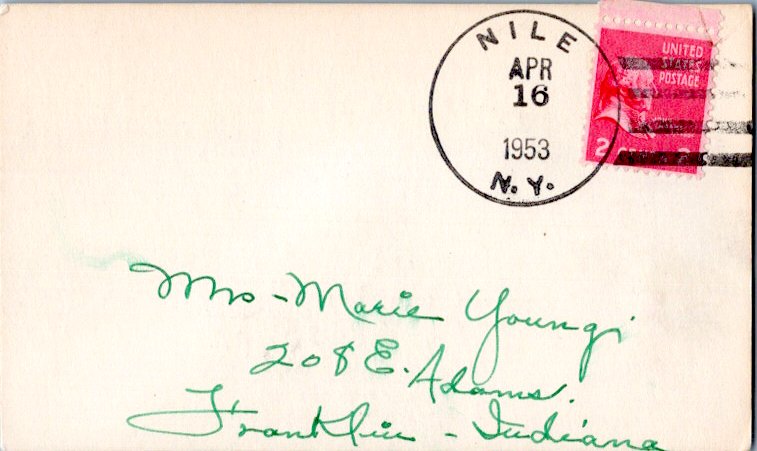 NILE
APR
16
1953
N.Y.
UNITED
STATES
POSTAGE
2
Mrs - Marie Young
208 E. Adams.
Franklin - Indiana